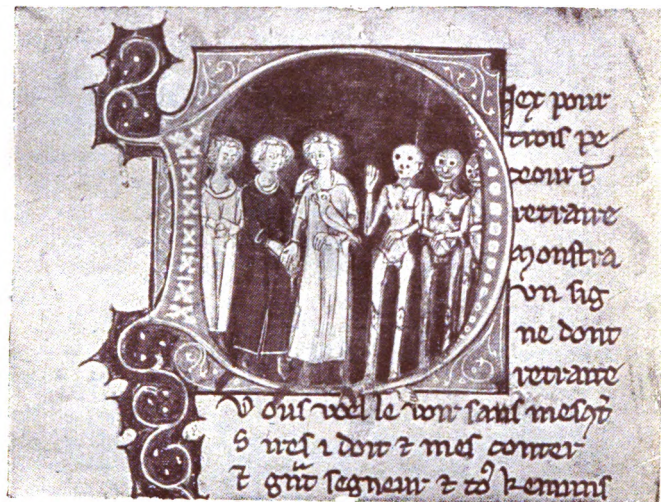 Diex pour
trois pe
cours
retraire
monstra
vn sig
ne dont
retraite
Vous voel le voir sans mesqt
Sires i doit z mes conter
segneur z